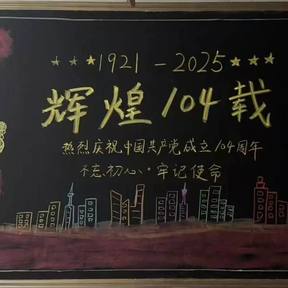 ★★★1921-2025★★★
辉煌104载
热烈庆祝中国共产党成立104周年
不忘初心·牢记使命